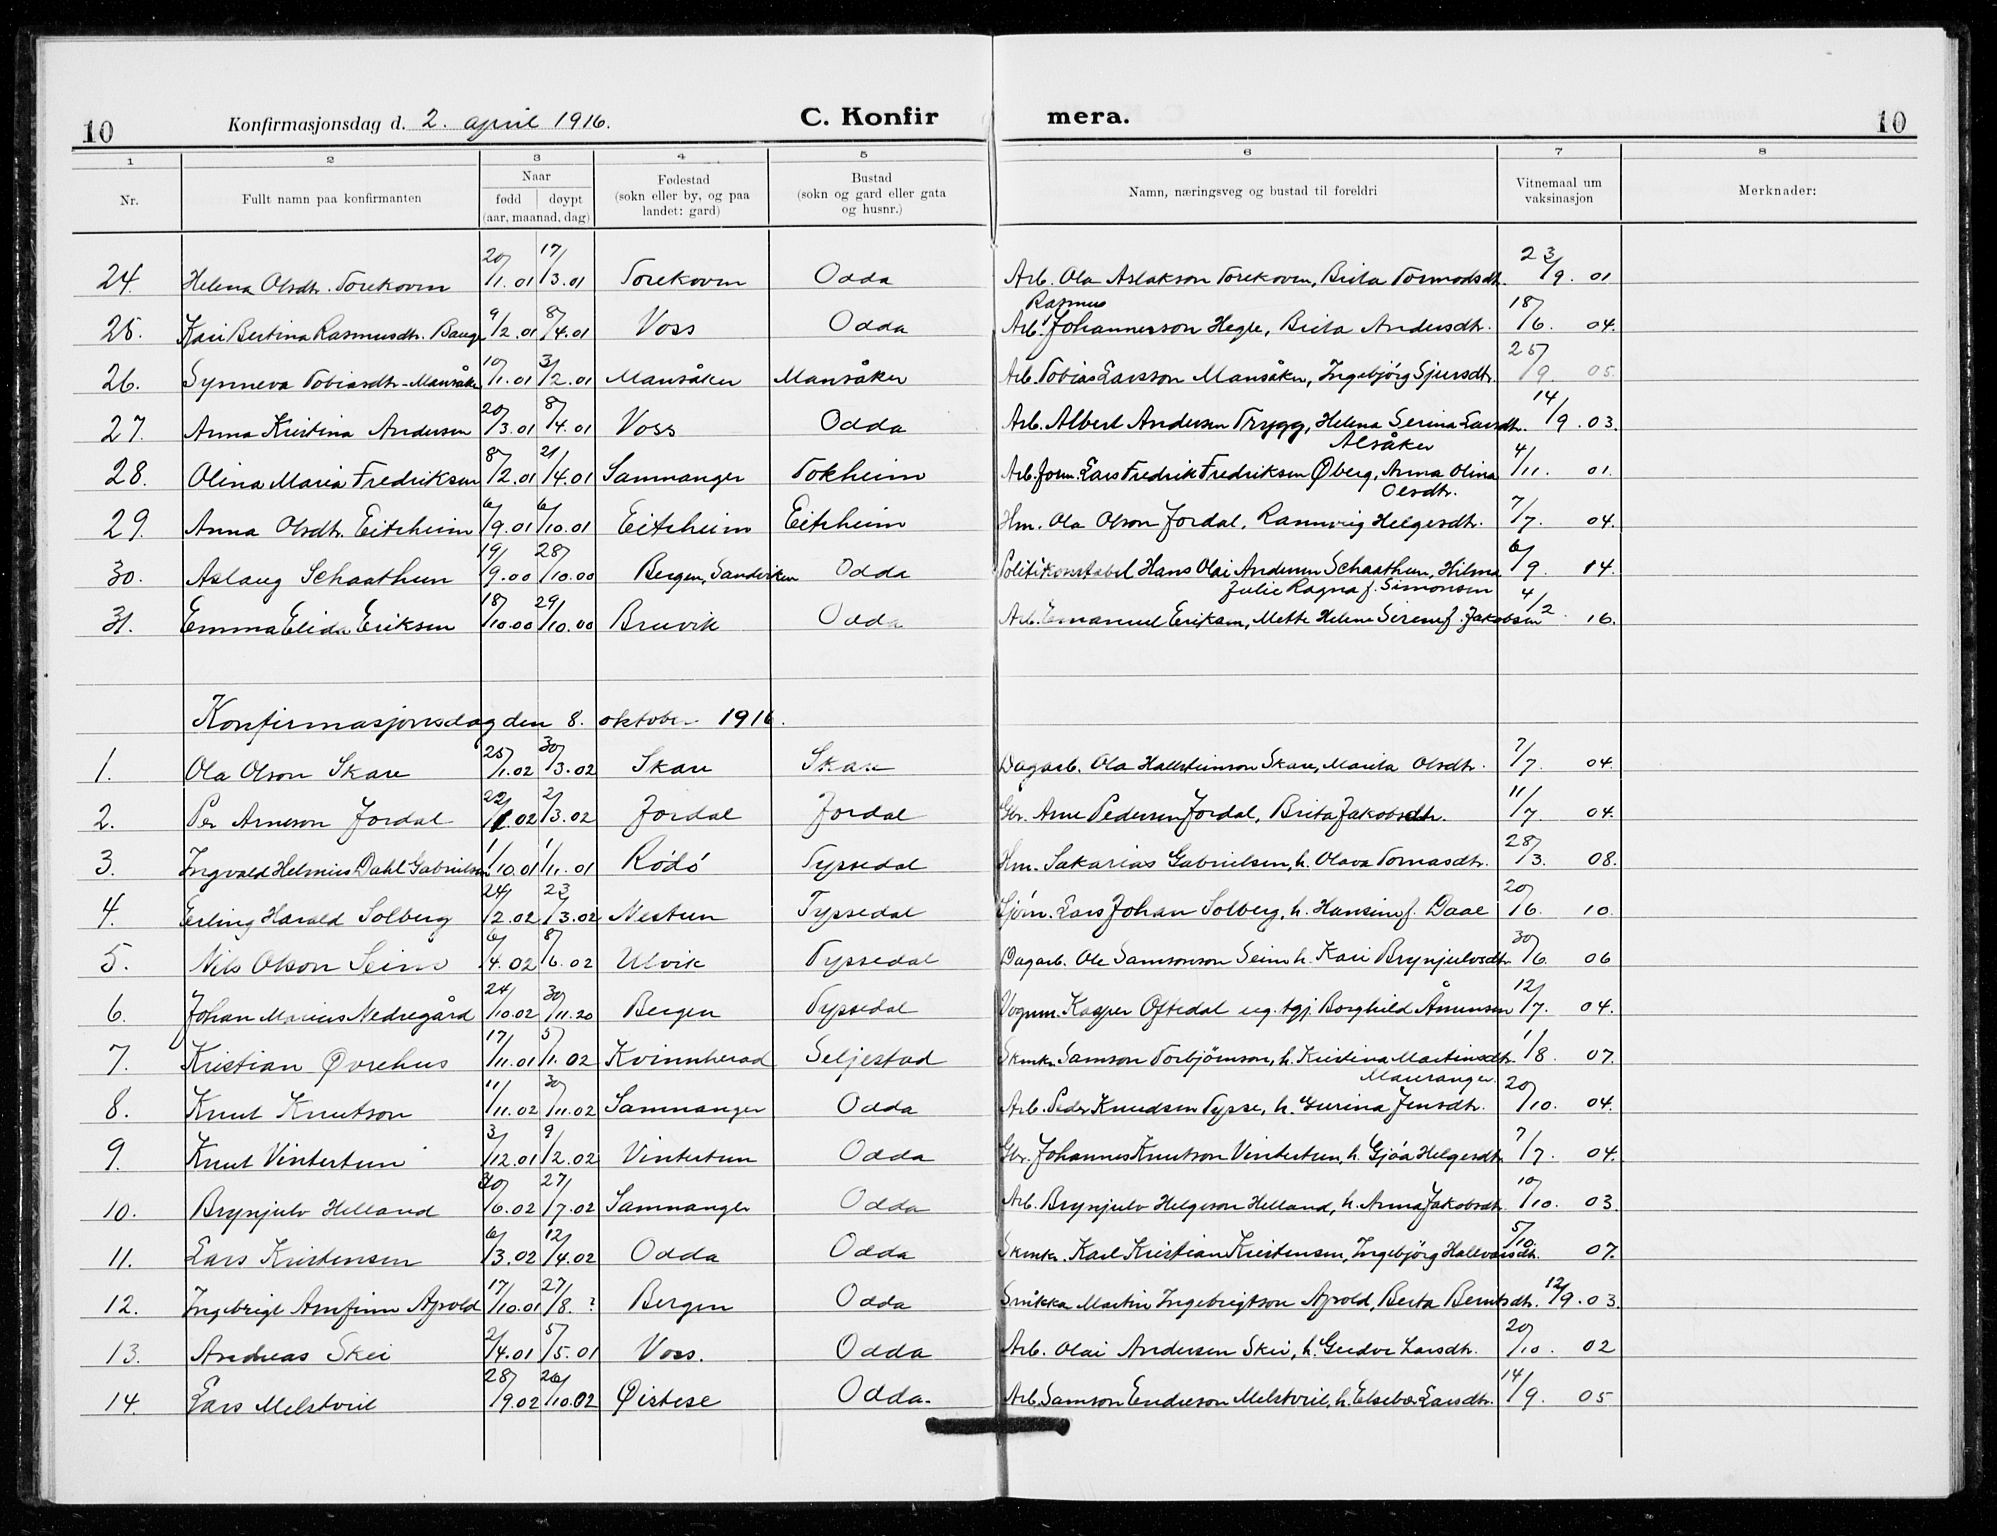 10 Konfirmasjonsdag d. 2. april 1916. C. Konfir mera. 10
1 2 3 4 5 6 7 8
Nr. Fullt namn paa konfirmanten Naar fødd døypt (aar, maanad, dag) Fødestad (sokn eller by, og paa landet: gard) Bustad (sokn og gard eller gata og husnr.) Namn, næringsveg og bustad til foreldri Vitnemaal um vaksinasjon Merknader:
24. Helena Olsdtr. Torekoven 20/1.01 17/3.01 Torekoven Odda Arb. Ola Aslakson Torekoven, Brita Tormodsdtr. 23/9. 01
25. Kari Bertina Rasmusdtr. Bauge 9/2.01 8/4.01 Voss Odda Arb. Rasmus Johannesson Hegle, Brita Andersdtr. 18/6. 04.
26. Synneva Tobiasdtr. Mansåker 10/1.01 3/2.01 Mansåker Mansåker Arb. Tobias Larsson Mansåker, Ingebjörg Sjursdtr. 25/9. 05.
27. Anna Kristina Andersen 20/3.01 8/4.01 Voss Odda Arb. Albert Andersen Trygg, Helena Serina Larsdtr. Alsåker 14/9. 03.
28. Olina Maria Fredriksen 8/2.01 21/4.01 Samnanger Tokheim Arb.form. Lars Fredrik Fredriksen Øberg, Anna Olina Olsdtr. 4/11. 01.
29. Anna Olsdtr. Eitrheim 6/9.01 6/10.01 Eitrheim Eitrheim Hm. Ola Olson Jordal, Rannveig Helgesdtr. 7/7. 04.
30. Aslaug Schaathun 19/9.00 28/10.00 Bergen, Sandviken Odda Politikonstabel Hans Olai Andersen Schaathun, Hilma Julie Ragna f. Simonsen 6/9. 14.
31. Emma Elida Eriksen 18/10.00 29/10.00 Bruvik Odda Arb. Emanuel Eriksen, Mette Helene Sirene f. Jakobsen 4/2. 16.
Konfirmasjonsdag den 8. oktober 1916.
1. Ola Olson Skare 25/1.02 30/3.02 Skare Skare Dagarb. Ola Hallsteinson Skare, Marita Olsdtr. 7/7. 04.
2. Per Arneson Jordal 22/1.02 2/3.02 Jordal Jordal Gbr. Arne Pederson Jordal, Brita Jakobsdtr. 11/7. 04.
3. Ingvald Helmius Dahl Gabrielsen 1/10.01 1/11.01 Rödö Tyssedal Hm. Sakarias Gabrielsen, h. Olava Tomasdtr. 28/3. 08.
4. Erling Harald Solberg 24/2.02 23/3.02 Nestun Tyssedal Sjöm. Lars Johan Solberg, h. Hansine f. Daae 20/6. 10.
5. Nils Olson Seim 6/4.02 8/6.02 Ulvik Tyssedal Dagarb. Ole Samsonson Seim h. Kari Brynjulvsdtr. 30/6. 06
6. Johan Marius Nedregård 24/10.02 30/11.20 Bergen Tyssedal Vognm. Kasper Oftedal ug. tgj. Borghild Åmunsen 12/7. 04.
7. Kristian Øvrehus 17/11.01 5/1.02 Kvinnherad Seljestad Skmkr. Samson Torbjörnson, h. Kristina Martinsdtr. Mauranger. 1/8. 07.
8. Knut Knutson 11/11.02 30/11.02 Samnanger Odda Arb. Peder Knudsen Tysse, h. Gurina Jensdtr. 20/10. 04.
9. Knut Vintertun 3/12.01 9/2.02 Vintertun Odda Gbr. Johannes Knutson Vintertun, h. Gjöa Helgesdtr. 7/7. 04.
10. Brynjulv Helland 30/6.02 27/7.02 Samnanger Odda Arb. Brynjulv Helgeson Helland, h. Anna Jakobsdtr. 10/10. 03.
11. Lars Kristensen 6/3.02 12/4.02 Odda Odda Skmkr. Karl Kristian Kristensen, Ingebjörg Hallvarsdtr. 5/10. 07.
12. Ingebrigt Arnfinn Apold 17/10.01 27/8. ? Bergen Odda Snikka Martin Ingebrigtson Apold, Berta Berntsdtr. 12/9. 03.
13. Andreas Skei 2/4.01 5/5.01 Voss. Odda Arb. Olai Andersen Skei, h. Gudve Larsdtr. 20/10. 02
14. Lars Melstveit 28/9.02 26/10.02 Øistese Odda. Arb. Samson Endreson Melstveit, h. Elsebe Larsdtr. 14/9. 05